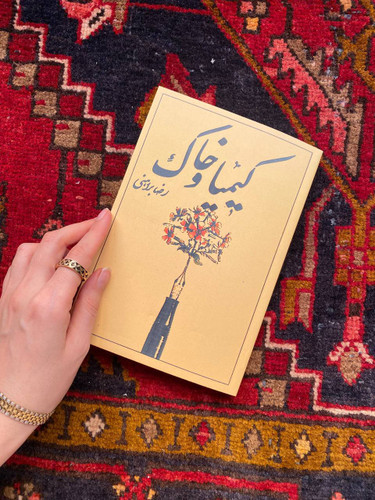 کیمیا و خاک
رضا براهنی